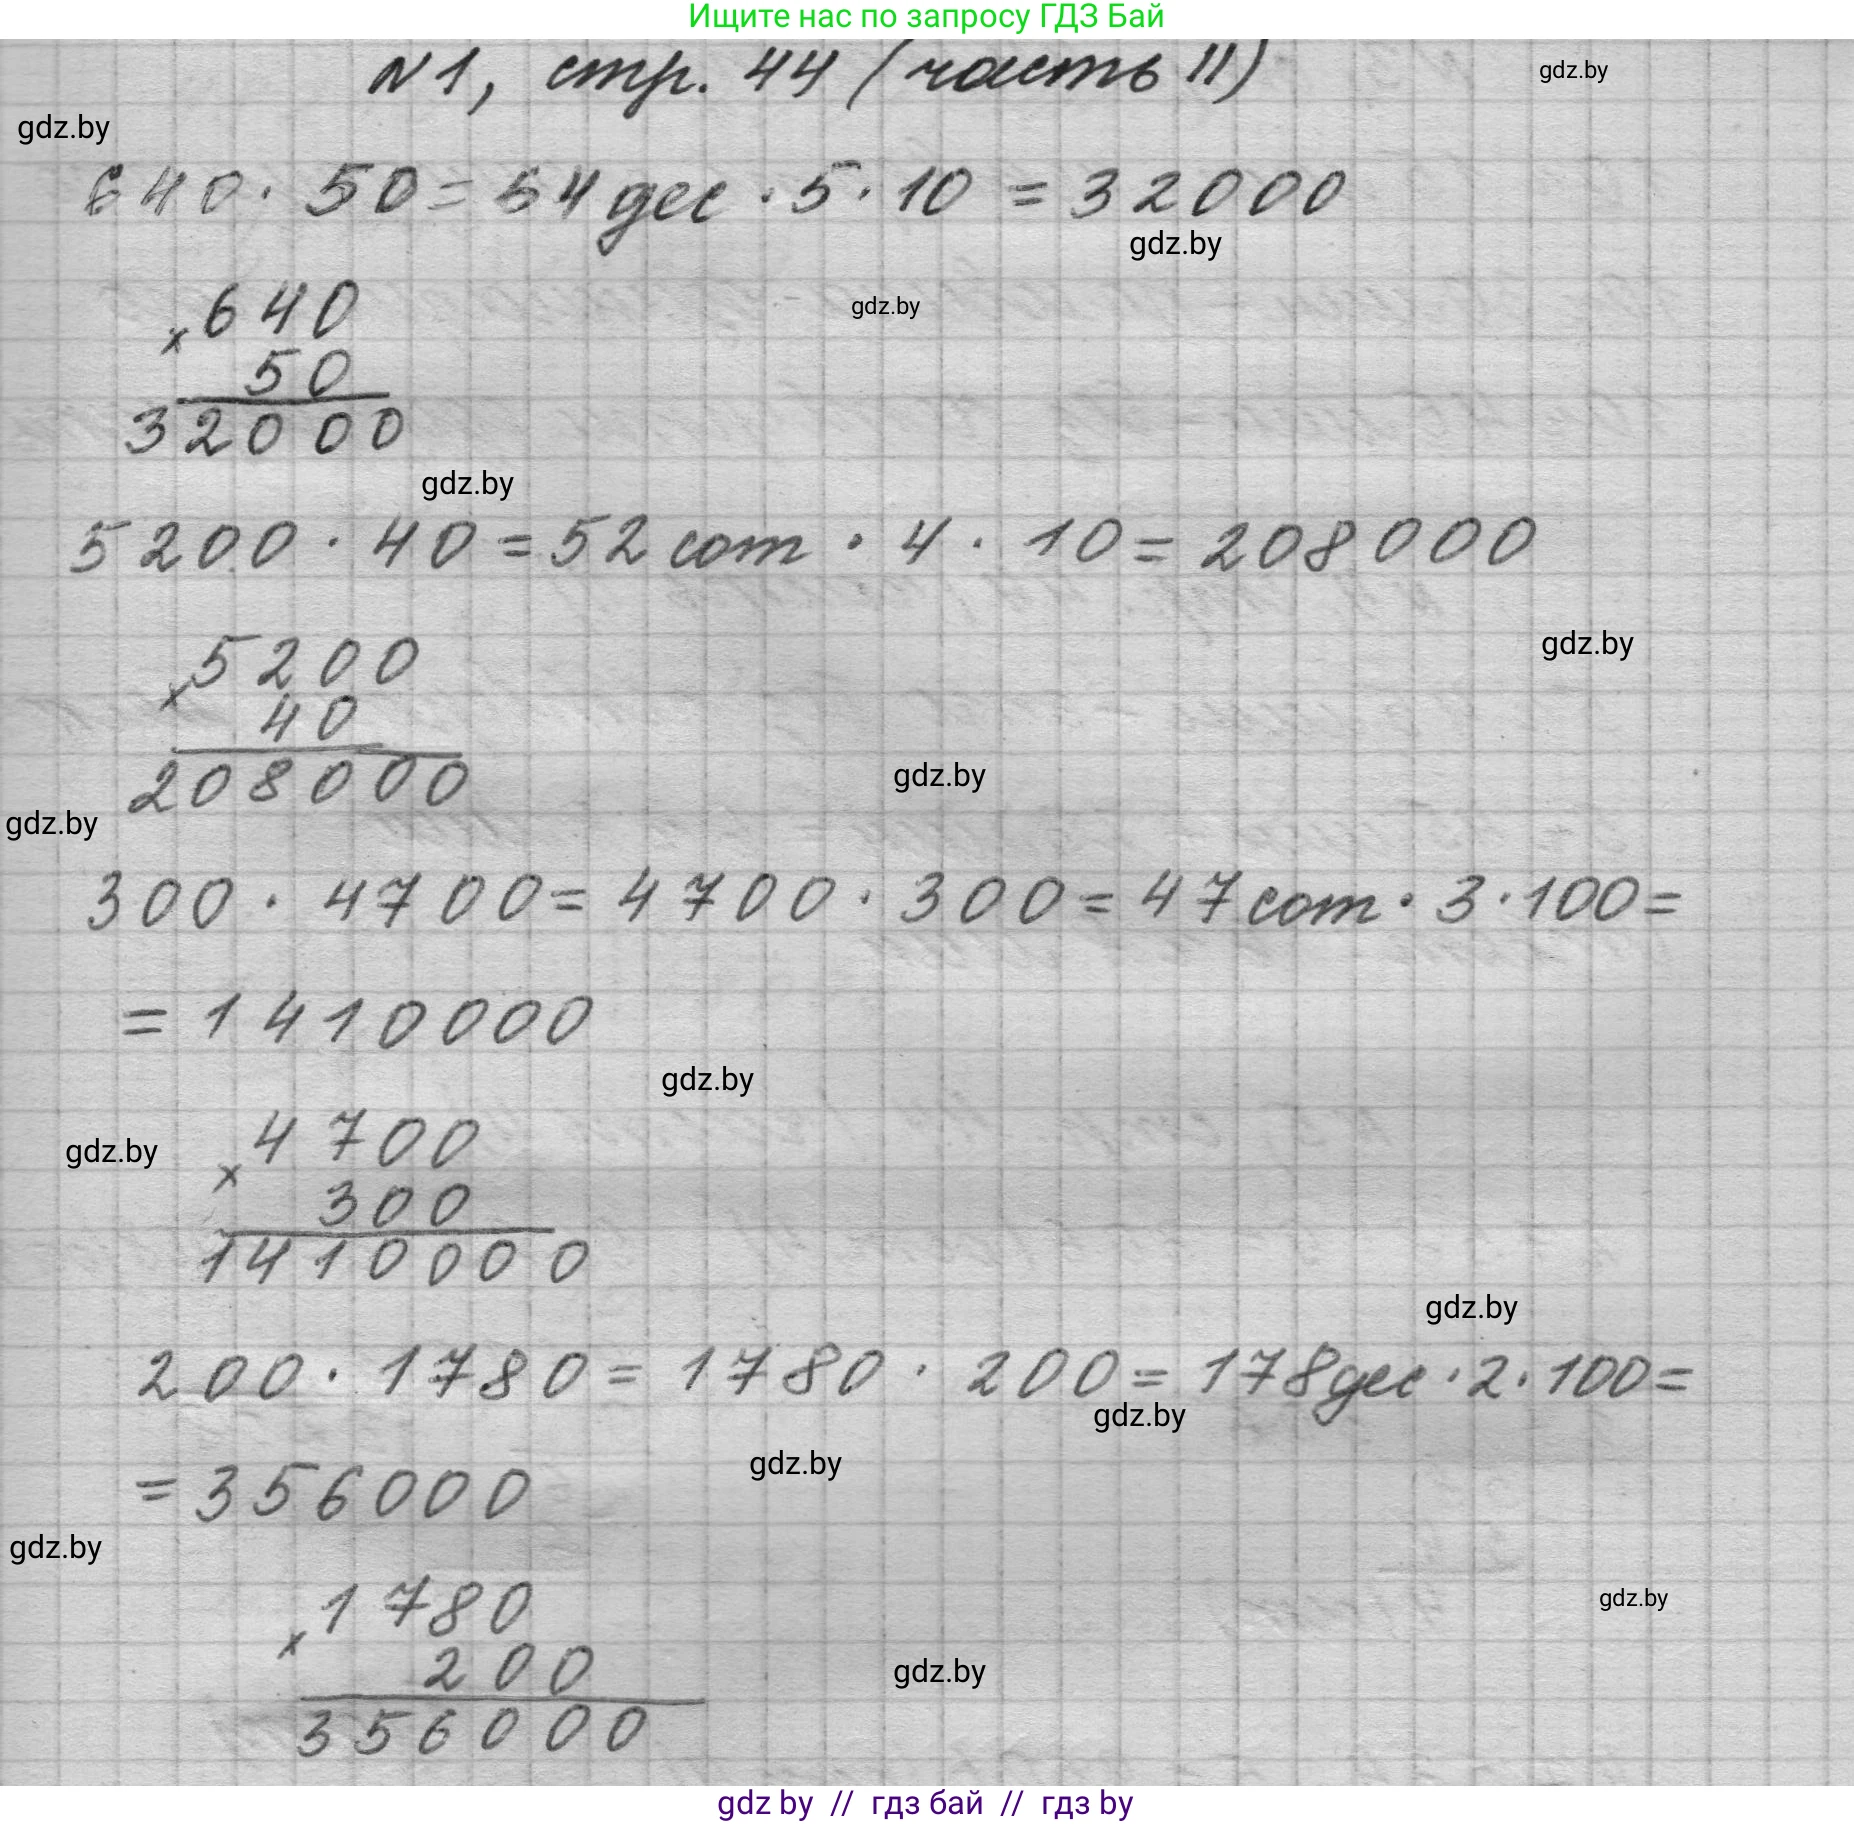 Ищите нас по запросу ГДЗ Бай
N1, стр. 44 (часть II)
gdz.by
gdz.by
640 · 50 = 54 дес · 5 · 10 = 32000
gdz.by
gdz.by
640
× 50
32000
gdz.by
5200 · 40 = 52 сот · 4 · 10 = 208000
gdz.by
5200
× 40
208000
gdz.by
gdz.by
300 · 4700 = 4700 · 300 = 47 сот · 3 · 100 =
= 1410000
gdz.by
gdz.by
4700
× 300
1410000
gdz.by
200 · 1780 = 1780 · 200 = 178 дес · 2 · 100 =
gdz.by
gdz.by
= 356000
gdz.by
gdz.by
1780
× 200
gdz.by
356000
gdz by // гдз бай // гдз by